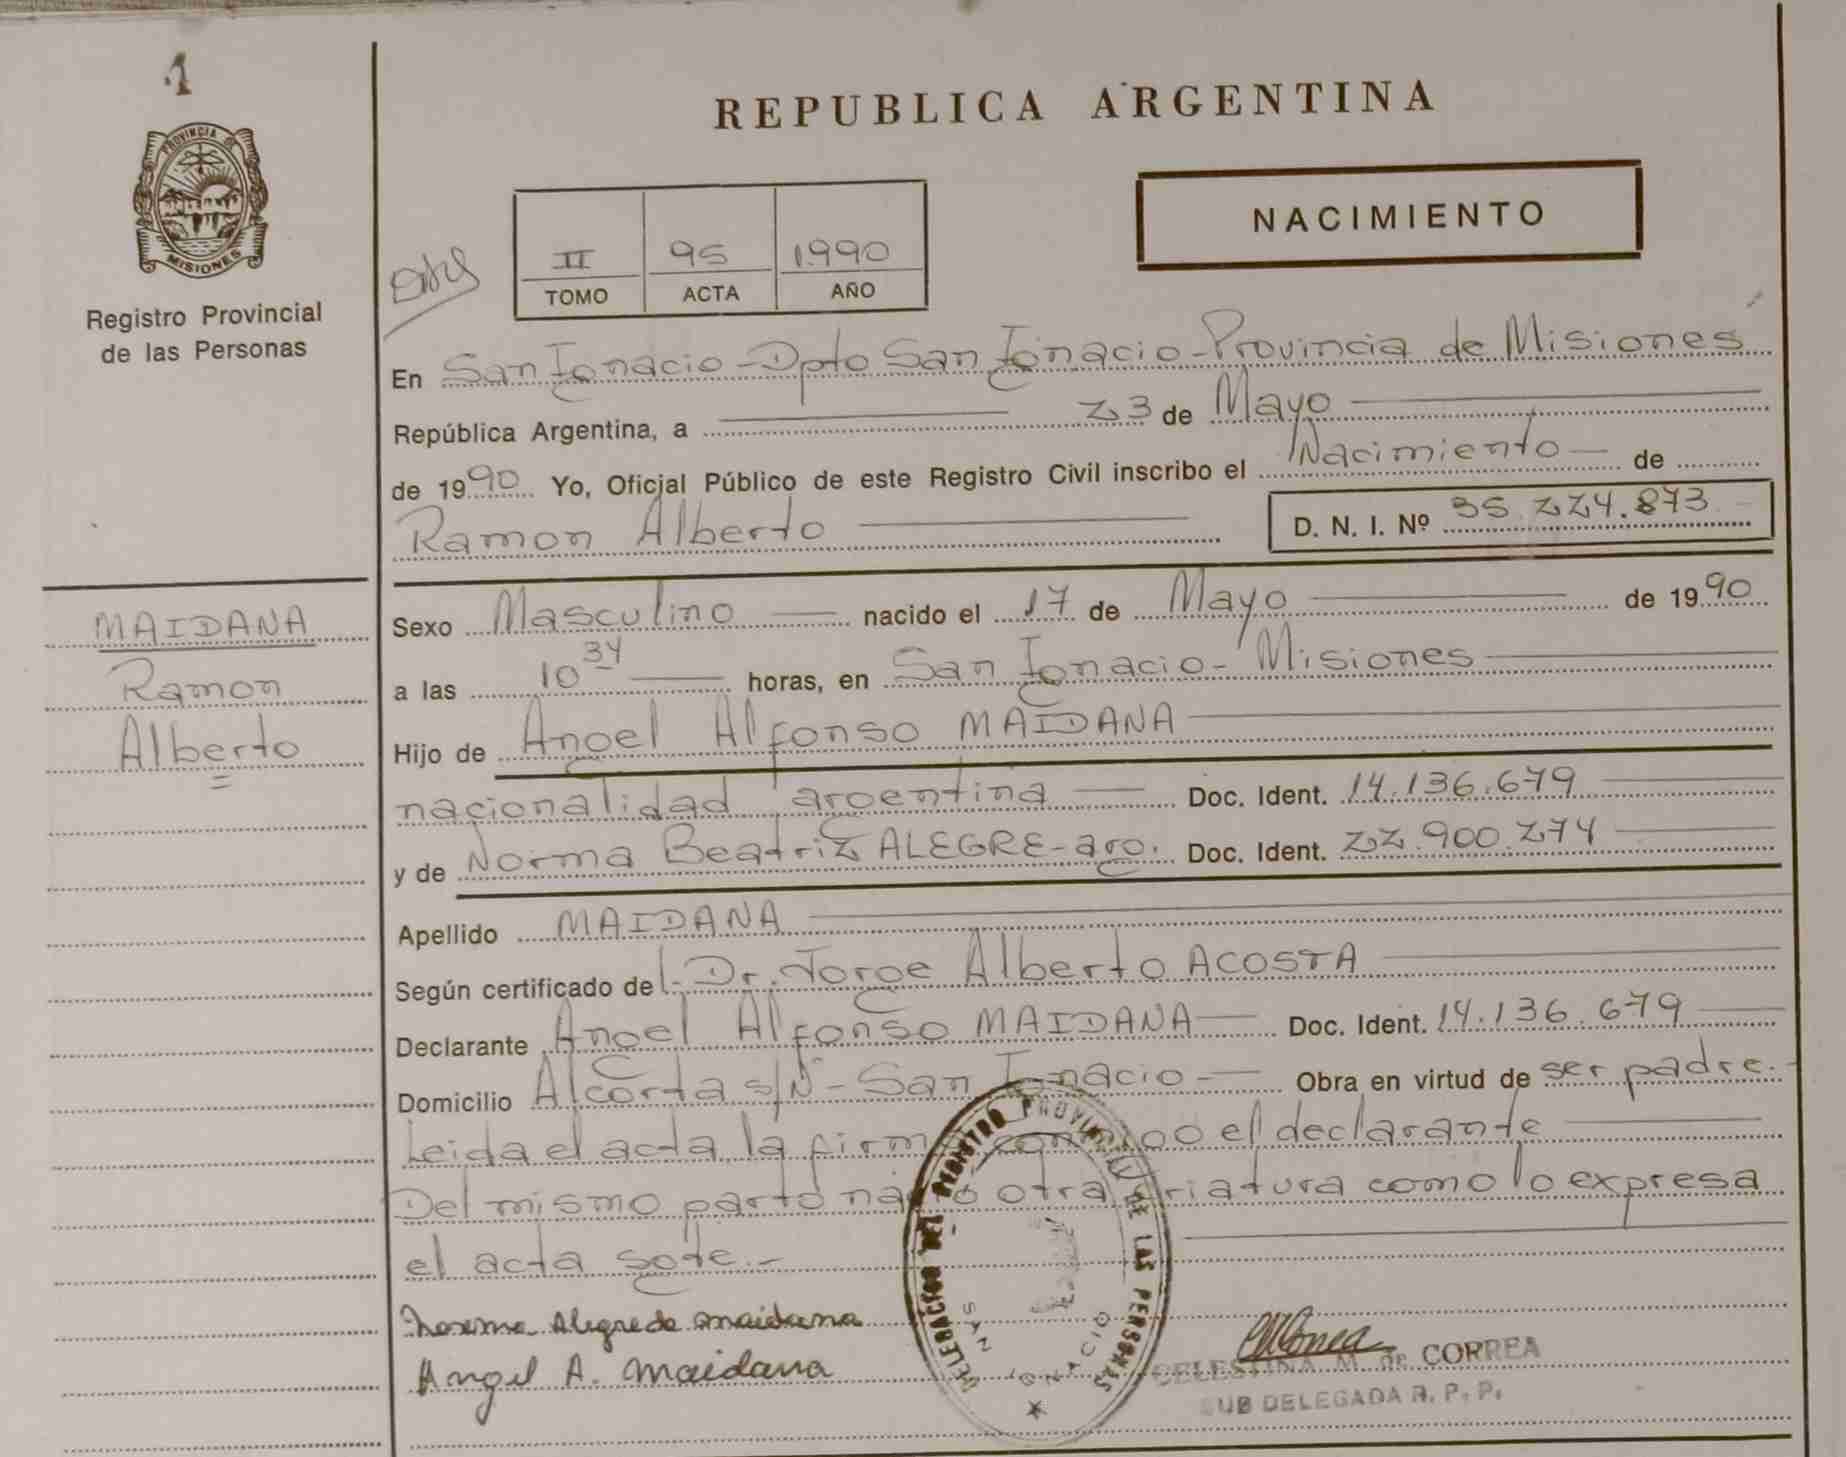 1
PROVINCIA DE
MISIONES
Registro Provincial
de las Personas
MAIDANA
Ramon
Alberto
REPUBLICA ARGENTINA
NACIMIENTO
II 95 1990
TOMO ACTA AÑO
En San Ignacio - Dpto San Ignacio - Provincia de Misiones
República Argentina, a 23 de Mayo
de 1990 Yo, Oficial Público de este Registro Civil inscribo el Nacimiento de
Ramon Alberto D. N. I. Nº 35.224.873
Sexo Masculino nacido el 17 de Mayo de 1990
a las 10 34 horas, en San Ignacio - Misiones
Hijo de Angel Alfonso MAIDANA
nacionalidad argentina Doc. Ident. 14.136.679
y de Norma Beatriz ALEGRE - arg. Doc. Ident. 22.900.274
Apellido MAIDANA
Según certificado del Dr. Jorge Alberto ACOSTA
Declarante Angel Alfonso MAIDANA Doc. Ident. 14.136.679
Domicilio Alcorta s/Nº - San Ignacio Obra en virtud de ser padre.-
Leida el acta, la firm conmigo el declarante
Del mismo parto nació otra criatura como lo expresa
el acta sgte.-
Norma Alegre de Maidana
Angel A. Maidana
DELEGACION DEL REGISTRO PROVINCIAL DE LAS PERSONAS
SAN IGNACIO
CELESTINA M. de CORREA
SUB DELEGADA R. P. P.